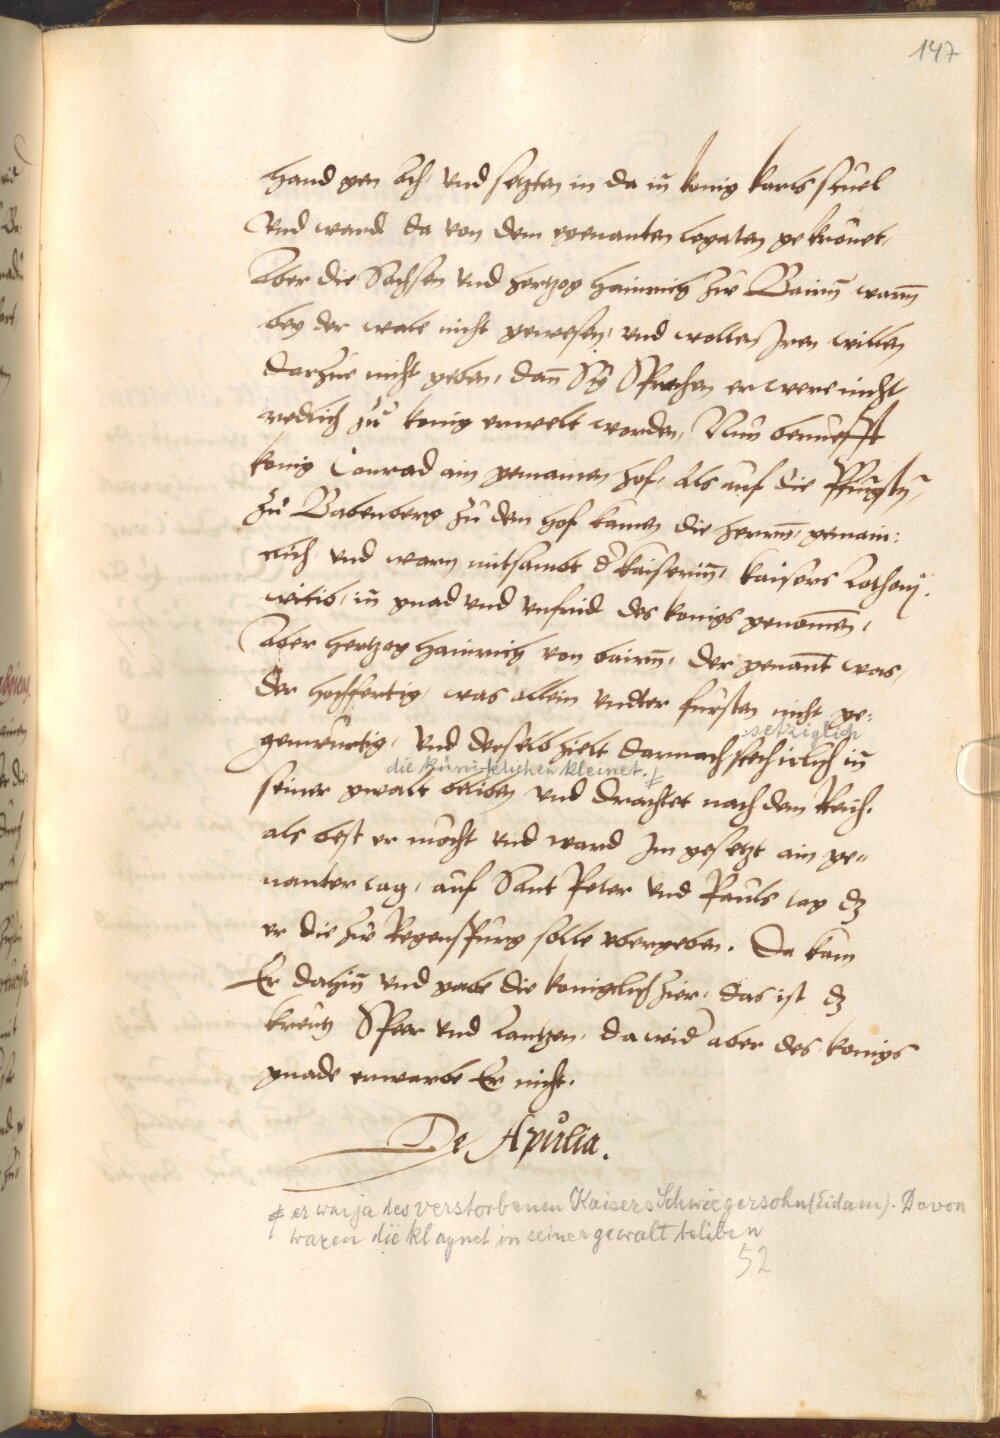 147
hand gen Ach, und setzten in da in konig Karls stuel
Und ward da von dem egenanten legaten gekrönet,
Aber die Sachsen und hertzog Hainrich zw Bairn warn
bey der wale nicht gewesen, und wolten Jren willen
darzue nicht geben, dan Sy Sprachen er were nicht
redlich zu konig erwelt worden, Nun berueffst
konig Conrad ain gemainen hof, als auf die Pfingstn,
zu Babenberg zu dem hof kamen die herren, gemain:
lich und warn mitsambt der kaiserin, kaisers Lotharij
witib, in gnad und unfrid des konigs genomen,
Aber hertzog Hainrich von bairn, der genant was,
der hochfertig, was allein undter fursten nicht ge:
setziglich
genwurtig, Und derselb hielt darnach stechiclich in
die künicklichen kleinet. ‡
seiner gwalt beliben und drachtet nach dem Reich.
als best er mocht und ward Jm gesetzt ain ge=
nanter tag, auf Sant Peter und Pauls tag dz
er die zw Regenspurg solle ubergeben. Da kam
Er dahin und gabe die koniglich zier, das ist dz
kreutz Speer und Lantzen, da wider aber des konigs
gnade erwarbe Er nicht.
De Apulia.
‡ er war ja des verstorbenen Kaisers Schwiegersohn (Eidam). Davon
waren die klaynet in seiner gewalt beliben
52